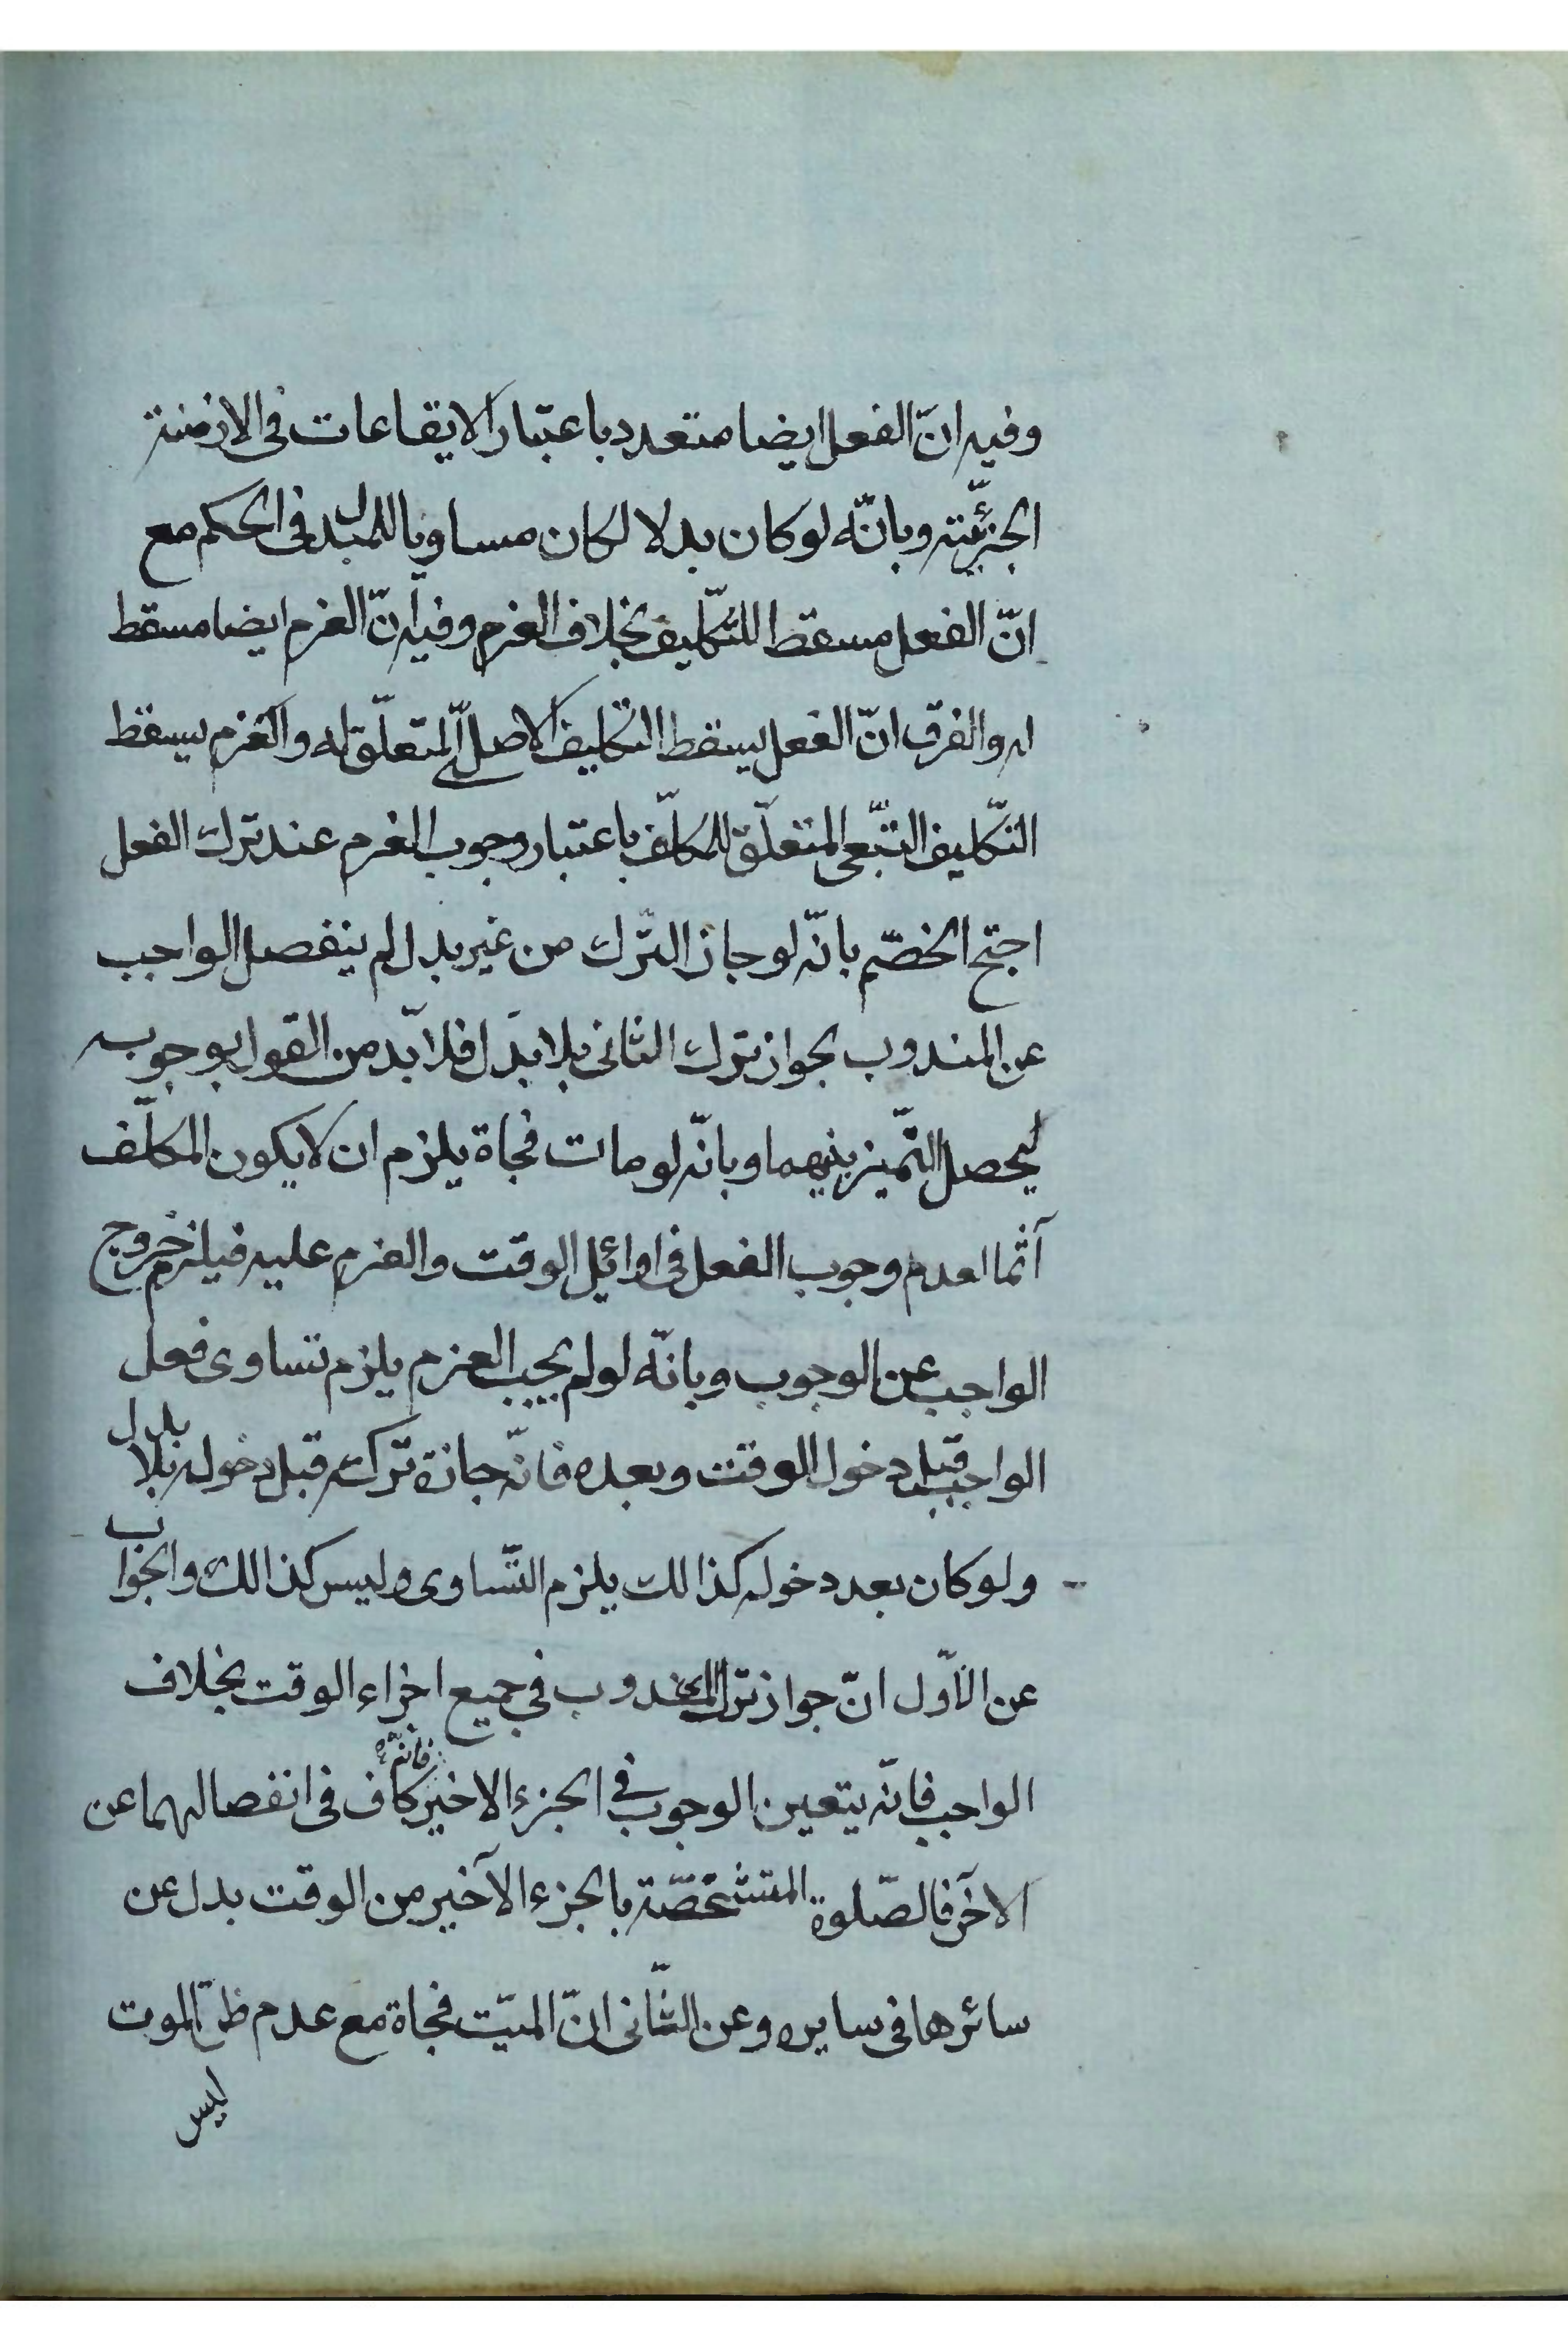 وفيه انّ الفعل ايضا متعدد باعتبار الايقاعات في الازمنة
الجزئيّة وبانّه لو كان بدلا لكان مساويا للمبدل في الحكم مع
انّ الفعل مسقط للتّكليف بخلاف العزم وفيه انّ العزم ايضا مسقط
له والفرق انّ الفعل يسقط التكليف الاصلي المتعلّق له والعزم يسقط
التّكليف التّبعى المتعلّق للمكلّف باعتبار وجوب العزم عند ترك الفعل
احتج الخصم بانّه لو جاز التّرك من غير بدل لم ينفصل الواجب
عن المندوب بجواز ترك الثانى بلا بدل فلا بّد من القول بوجوبه
ليحصل التّميز بينهما وبانّه لو مات فجاة يلزم ان لا يكون المكلّف
آثما لعدم وجوب الفعل في اوائل الوقت والعزم عليه فيلزم خروج
الواجب عن الوجوب وبانّه لو لم يجب العزم يلزم تساوى فعل
الواجب قبل دخول الوقت وبعده فانّه جازة تركه قبل دخوله بلا بدل
ولو كان بعد دخوله كذا لك يلزم التّساوى وليس كذا لك والجواب
عن الاّول انّ جواز ترك المندوب في جميع اجزاء الوقت بخلاف
الواجب فانّه يتعين الوجوب في الجزء الاخير فانّه كاف في انفصالهما عن
الاخر فالصّلوة المتشخصّة بالجزء الآخير من الوقت بدل عن
سائرها في سايره وعن الثّانى انّ الميّت فجاة مع عدم ظنّ الموت
ليس